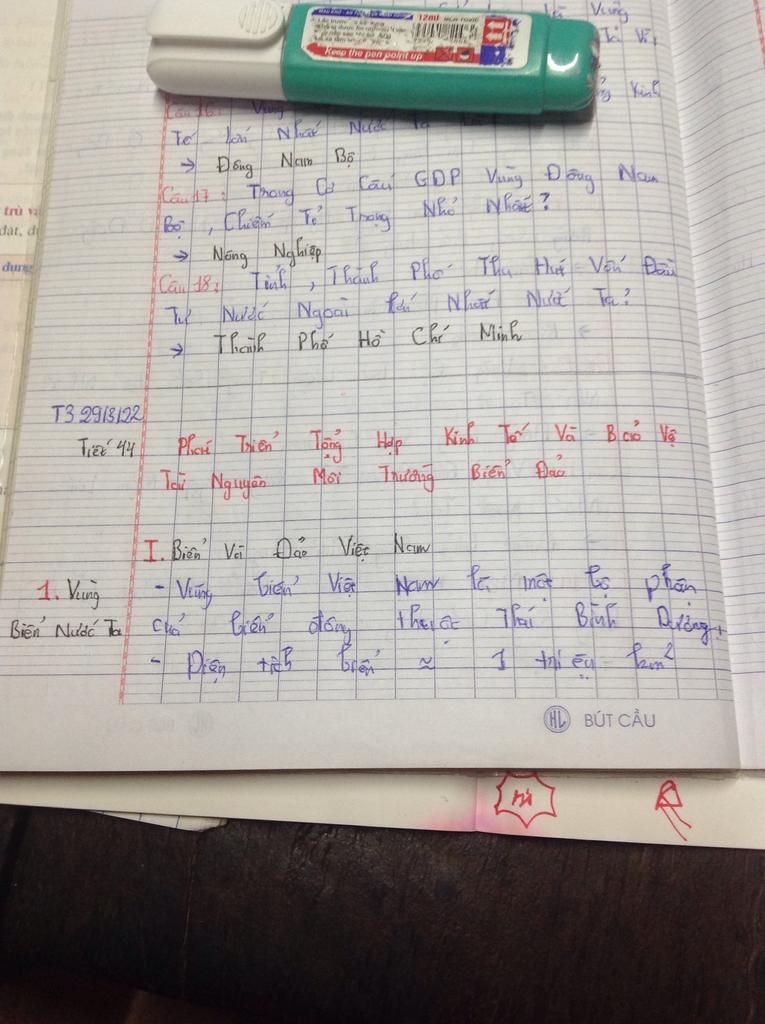 là Vùng
Ta Vì
Kinh
12ml NON-TOXIC
Keep the pen point up
Câu 16: Vùng
Tế Lớn Nhất Nước Ta
→ Đông Nam Bộ
Câu 17: Trong Cơ Cấu GDP Vùng Đông Nam
Bộ, Chiếm Tỉ Trọng Nhỏ Nhất?
→ Nông Nghiệp
Câu 18: Tỉnh, Thành Phố Thu Hút Vốn Đầu
Tư Nước Ngoài Lớn Nhất Nước Ta?
→ Thành Phố Hồ Chí Minh
T3 29/3/22
Tiết 44 Phát Triển Tổng Hợp Kinh Tế Và Bảo Vệ
Tài Nguyên Môi Trường Biển Đảo
I. Biển Và Đảo Việt Nam
1. Vùng - Vùng biển Việt Nam là một bộ phận
Biển Nước Ta của biển đông thuộc Thái Bình Dương.
- Diện tích biển ≈ 1 triệu km²
HL BÚT CẦU
trù và
dung